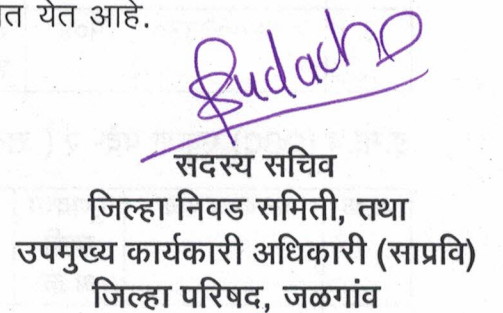 त येत आहे.
सदस्य सचिव
जिल्हा निवड समिती, तथा
उपमुख्य कार्यकारी अधिकारी (साप्रवि)
जिल्हा परिषद, जळगांव